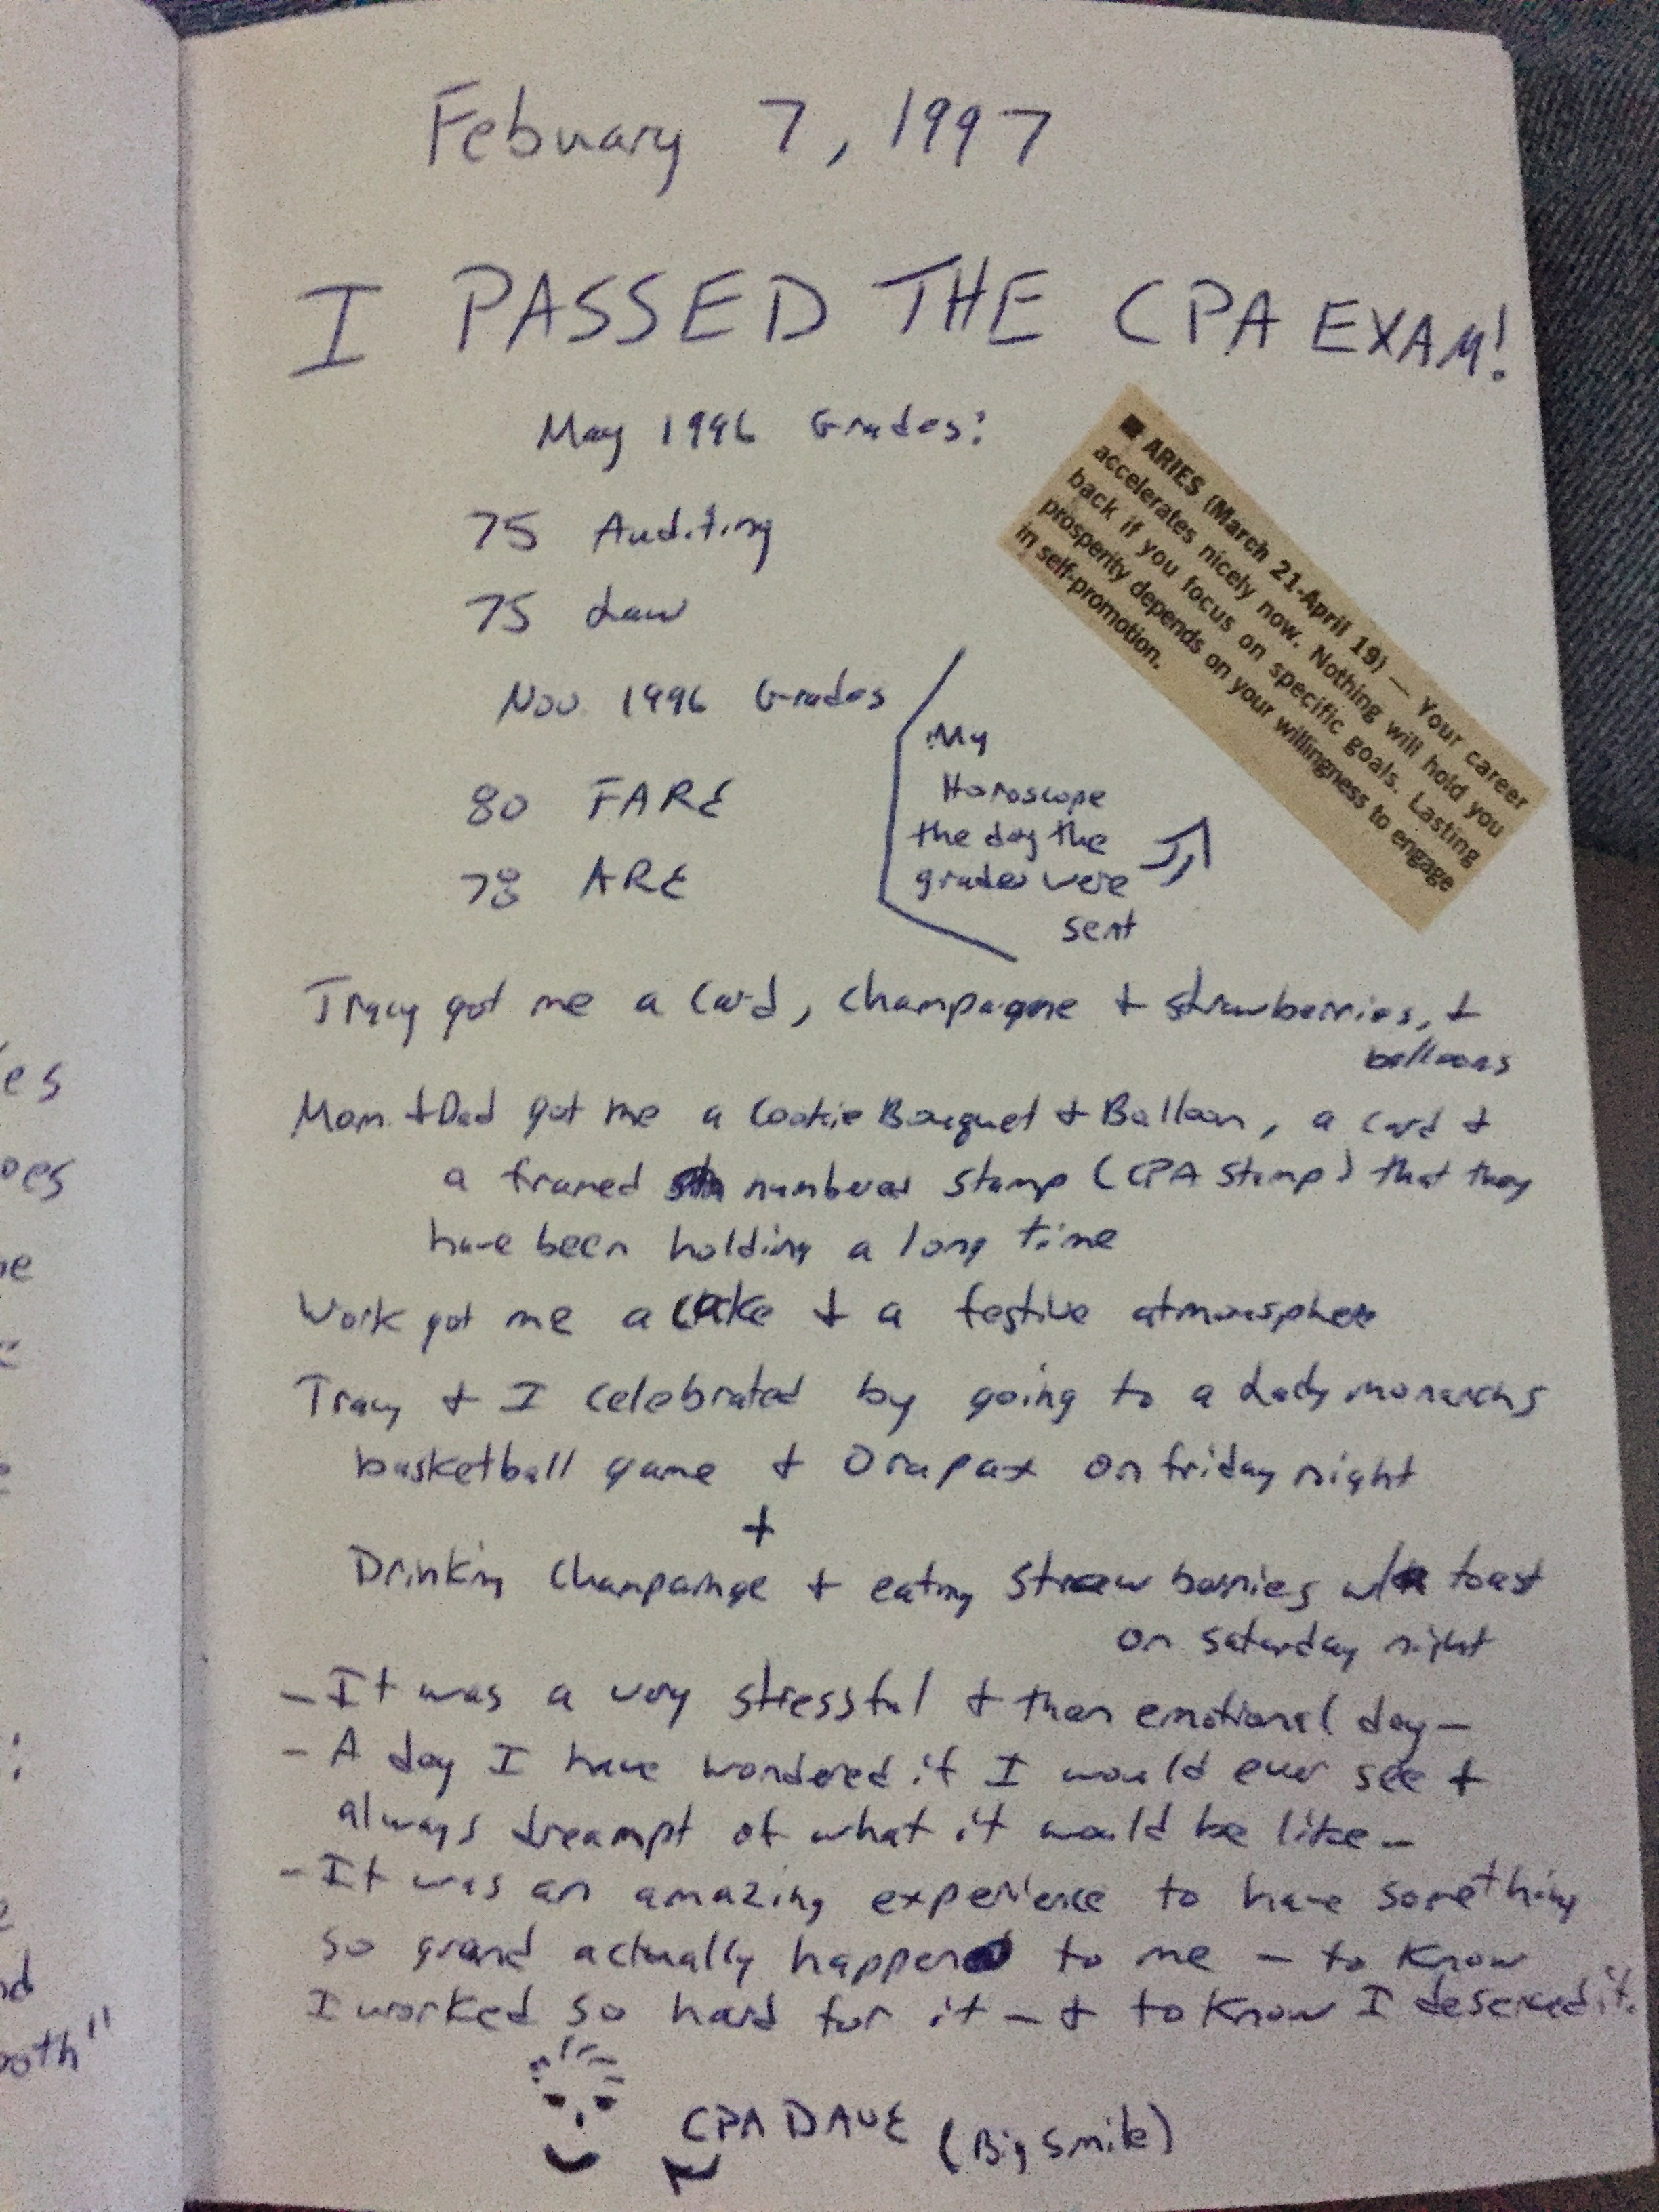 Febuary 7, 1997
I PASSED THE CPA EXAM!
May 1996 Grades:
75 Auditing
75 Law
Nov. 1996 Grades
80 FARE
78 ARE
My
Horoscope
the day the
grades were
sent
■ ARIES (March 21-April 19) — Your career
accelerates nicely now. Nothing will hold you
back if you focus on specific goals. Lasting
prosperity depends on your willingness to engage
in self-promotion.
Tracy got me a card, champagne + strawberries, +
balloons
Mom + Dad got me a Cookie Bouquet + Balloon, a card +
a framed numbered stamp (CPA Stamp) that they
have been holding a long time
Work got me a cake + a festive atmousphere
Tracy + I celebrated by going to a Lady monarchs
basketball game + Orapax on friday night
+
Drinking champainge + eating strawberries w/ toast
on saturday night
- It was a very stressful + then emotional day -
- A day I have wondered if I would ever see +
always dreampt of what it would be like -
- It was an amazing experience to have something
so grand actually happen to me - to know
I worked so hard for it - + to know I deserved it.
CPA DAVE (Big Smile)
es
oes
e
:
nd
ooth"